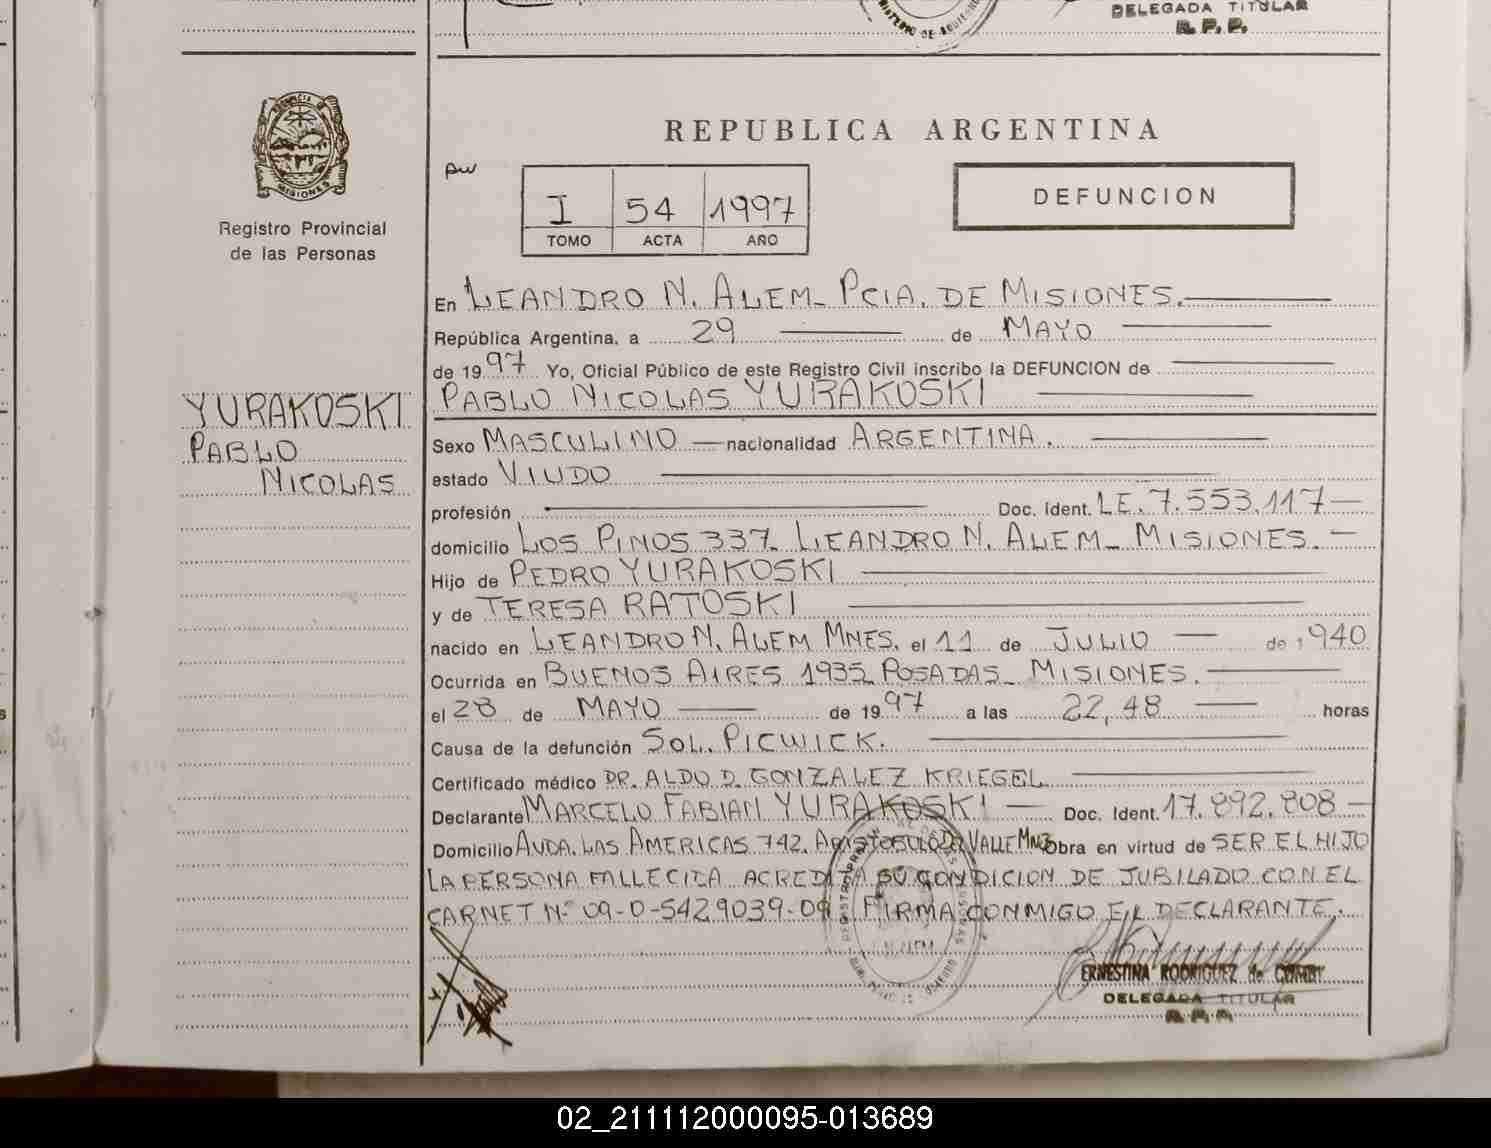 DELEGADA TITULAR
R. P. P.
PROVINCIA DE
MISIONES
Registro Provincial
de las Personas
REPUBLICA ARGENTINA
I 54 1997
TOMO ACTA AÑO
DEFUNCION
En LEANDRO N. ALEM - PCIA. DE MISIONES.
República Argentina, a 29 de MAYO
de 1997 Yo, Oficial Público de este Registro Civil inscribo la DEFUNCION de
PABLO NICOLAS YURAKOSKI
YURAKOSKI
PABLO
NICOLAS
Sexo MASCULINO nacionalidad ARGENTINA.
estado VIUDO
profesión Doc. Ident. LE. 7.553.117
domicilio LOS PINOS 337. LEANDRO N. ALEM - MISIONES.
Hijo de PEDRO YURAKOSKI
y de TERESA RATOSKI
nacido en LEANDRO N. ALEM MNES. el 11 de JULIO de 1940
Ocurrida en BUENOS AIRES 1935 POSADAS - MISIONES.
el 28 de MAYO de 1997 a las 22,48 horas
Causa de la defunción SOL. PICWICK.
Certificado médico DR. ALDO D. GONZALEZ KRIEGEL
Declarante MARCELO FABIAN YURAKOSKI Doc. Ident. 17.892.808
Domicilio AVDA. LAS AMERICAS 742. ARISTOBULO D. VALLE MNES Obra en virtud de SER EL HIJO
LA PERSONA FALLECIDA ACREDITA SU CONDICION DE JUBILADO CON EL
CARNET Nº 09-0-5429039-09 FIRMA CONMIGO EL DECLARANTE.
ERNESTINA RODRIGUEZ de
DELEGADA TITULAR
R. P. P.
02_211112000095-013689